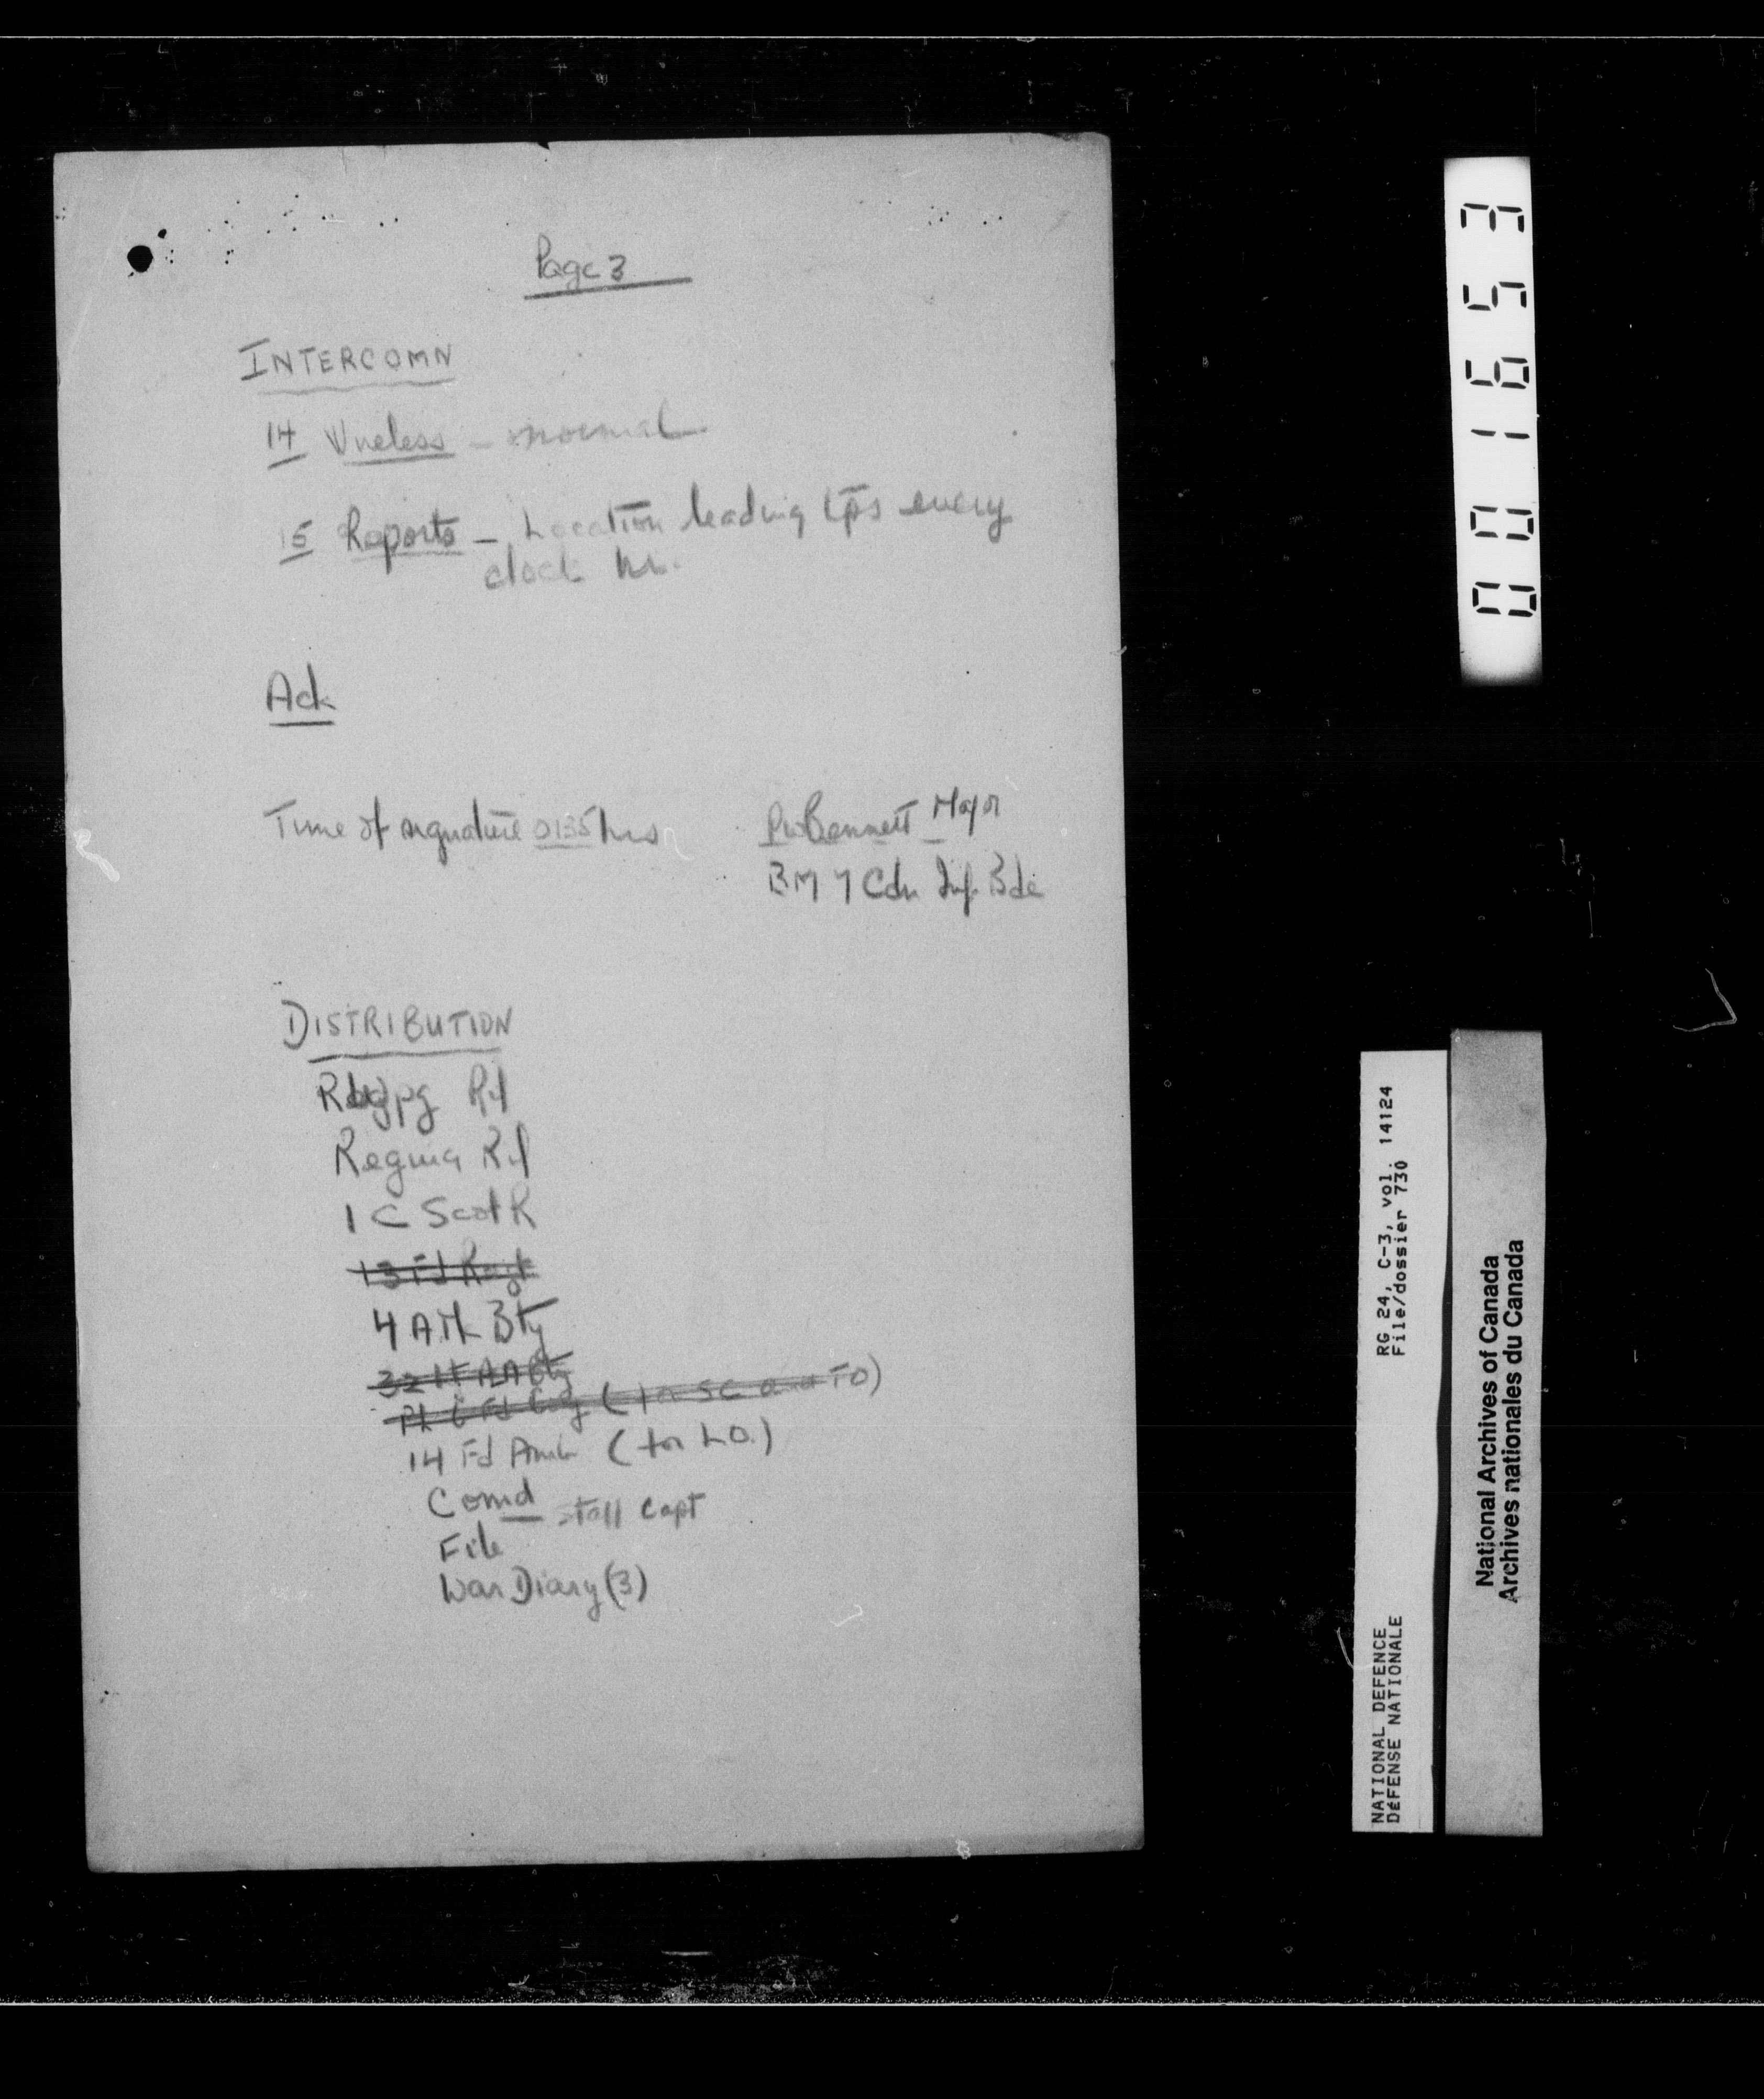 Page 3
INTERCOMN
14 Wireless – normal
15 Reports – Location leading tps every
clock hr.
Ack
Time of signature 0135 hrs
PW Bennett Major
BM 7 Cdn Inf Bde
DISTRIBUTION
Wpg Rif
Regina Rif
1 C Scot R
13 Fd Regt
4 A.Tk Bty
32 Lt AA Bty
Pl 6 Fd Coy (for SC and TO)
14 Fd Amb (for L.O.)
Comd Staff Capt
File
War Diary (3)
001653
RG 24, C-3, vol. 14124
File/dossier 730
NATIONAL DEFENCE
DÉFENSE NATIONALE
National Archives of Canada
Archives nationales du Canada